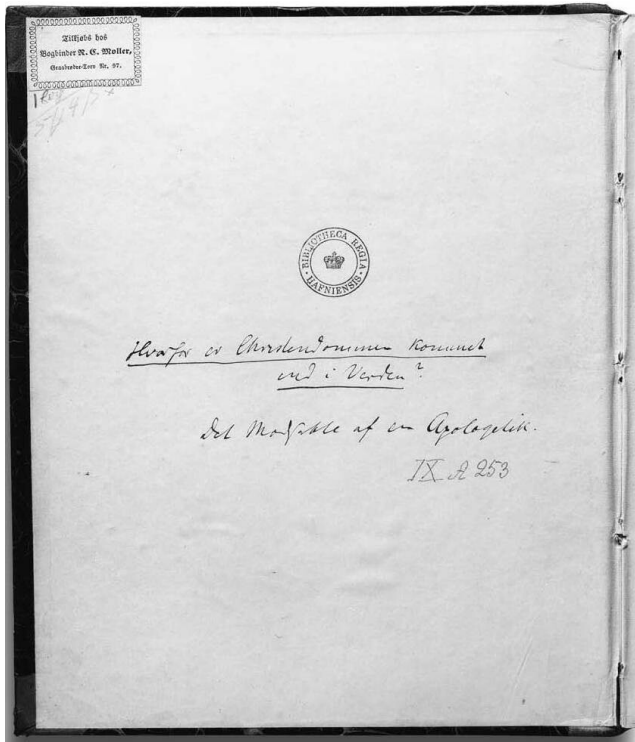 Tilkjøbs hos
Bogbinder N. C. Møller,
Graabrødre-Torv Nr. 97.
BIBLIOTHECA REGIA
HAFNIENSIS
Hvorfor er Christendommen kommet
ind i Verden?
Det Modsatte af en Apologetik.
IX A 253